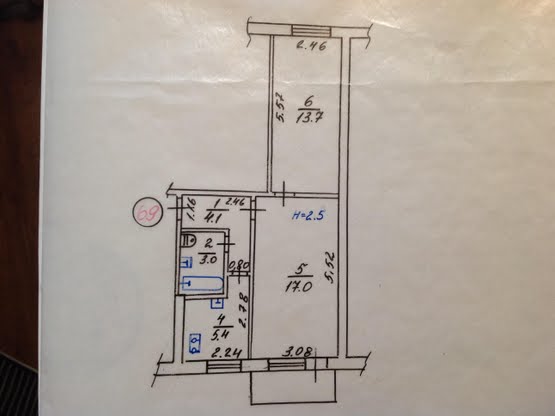 2.46
5.57
6
13.7
69
1.16
1
4.1
2.46
H=2.5
2
3.0
0.80
5
17.0
5.52
2.78
4
5.4
2.24
3.08